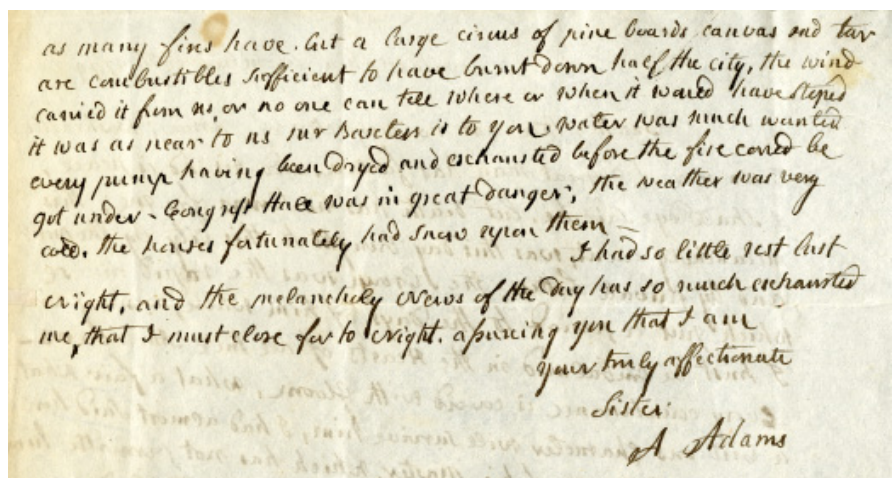 as many fires have. but a large circus of pine boards canvas and tar
are combustibles sufficient to have burnt down half the city, the wind
carried it from us, or no one can tell where or when it would have stoped
it was as near to us as mr Baxters is to you. water was much wanted
every pump having been dryed and exhausted before the fire could be
got under - Congress Hall was in great danger; the weather was very
cold. the houses fortunately had snow upon them —
I had so little rest last
night, and the melancholy news of the day has so much exhausted
me, that I must close for to night. assuring you that I am
your truly affectionate
Sister
A Adams